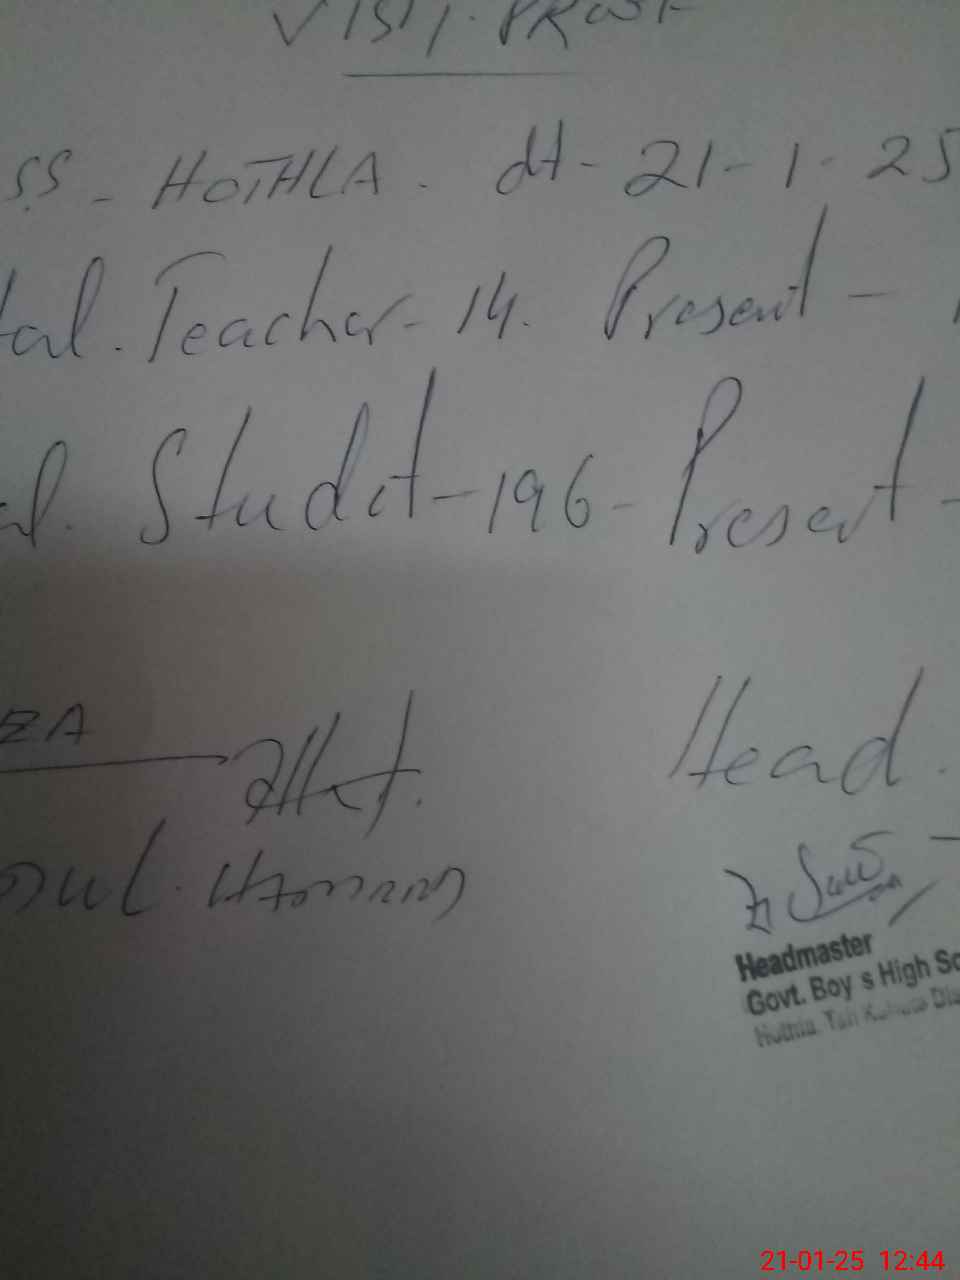 VISIT. PROOF
SS - HOTHLA. dt - 21-1-25
tal. Teacher - 14. Present -
al. Studet - 196 - Present -
EA
Head.
oul. Hameed
Headmaster
Govt. Boy s High Sc
Hothla.
21-01-25 12:44